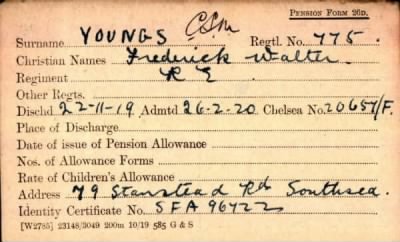 PENSION FORM 26D.
C.S.M
Surname YOUNGS Regtl. No. 775.
Christian Names Frederick Walter.
Regiment R E
Other Regts.
Dischd 22-11-19 Admtd 26-2-20 Chelsea No. 20657/F.
Place of Discharge
Date of issue of Pension Allowance
Nos. of Allowance Forms
Rate of Children's Allowance
Address 79 Stanstead Rd Southsea.
Identity Certificate No. SFA 96722
[W2785] 23148/2049 200m 10/19 585 G & S